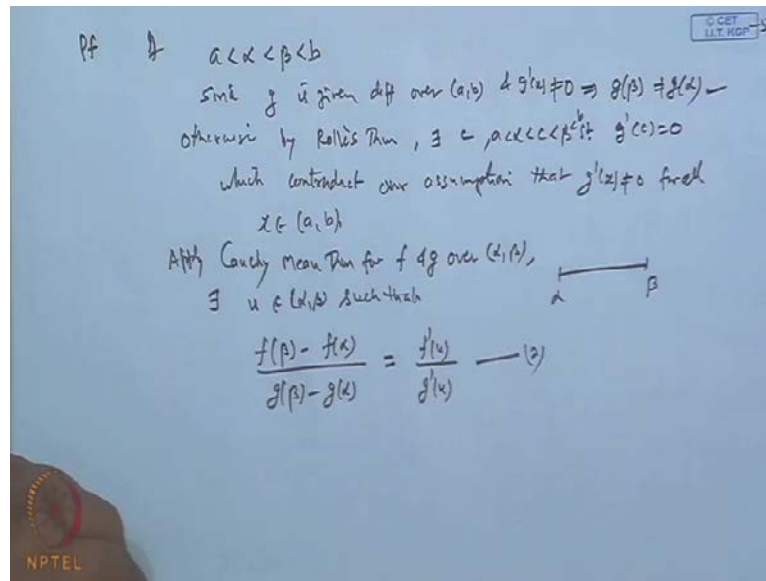 © CET
I.I.T. KGP
Pf If a < α < β < b
Since g is given diff over (a,b) & g'(x) ≠ 0 ⇒ g(β) ≠ g(α) —
otherwise by Rolle's Thm, ∃ c, a<α<c<β<b s.t. g'(c)=0
which contradict our assumption that g'(x) ≠ 0 for all
x ∈ (a, b).
Apply Cauchy Mean Thm for f & g over (α, β),
∃ u ∈ (α, β) such that
α β
f(β) - f(α) / g(β) - g(α) = f'(u) / g'(u) — (2)
NPTEL